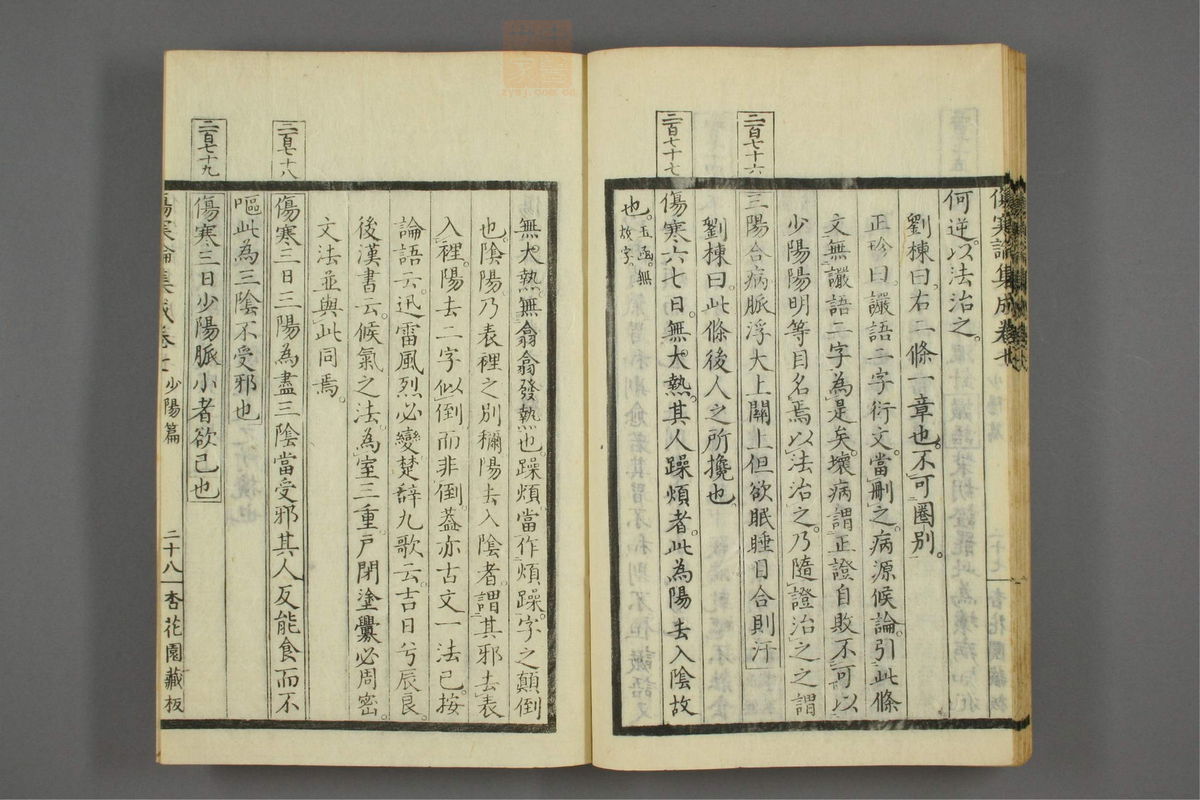 傷寒論集成卷七
何逆。以法治之。
劉棟曰。右二條一章也。不可圈別。
正珍曰。讝語二字衍文。當刪之。病源候論。引此條
文。無讝語二字。為是矣。壞病謂正證自敗。不可以
少陽陽明等目名焉。以法治之。乃隨證治之之謂
二百七十六
三陽合病脈浮大上關上但欲眠睡目合則汗
劉棟曰。此條後人之所攙也
二百七十七
傷寒六七日。無大熱。其人躁煩者。此為陽去入陰故
也。玉函。無煩字。
無大熱。無翕翕發熱也。躁煩當作煩躁。字之顛倒
也。陰陽乃表裡之別稱。陽去入陰者。謂其邪去表
入裡。陽去二字。似倒而非倒。蓋亦古文一法已。按
論語云。迅雷風烈必變。楚辭九歌云。吉日兮辰良。
後漢書云。候氣之法。為室三重。戶閉。塗釁必周密。
文法並與此同焉。
二百七十八
傷寒三日三陽為盡三陰當受邪其人反能食而不
嘔此為三陰不受邪也
二百七十九
傷寒三日少陽脈小者欲已也
傷寒論集成卷七 少陽篇 二十八 杏花園藏板